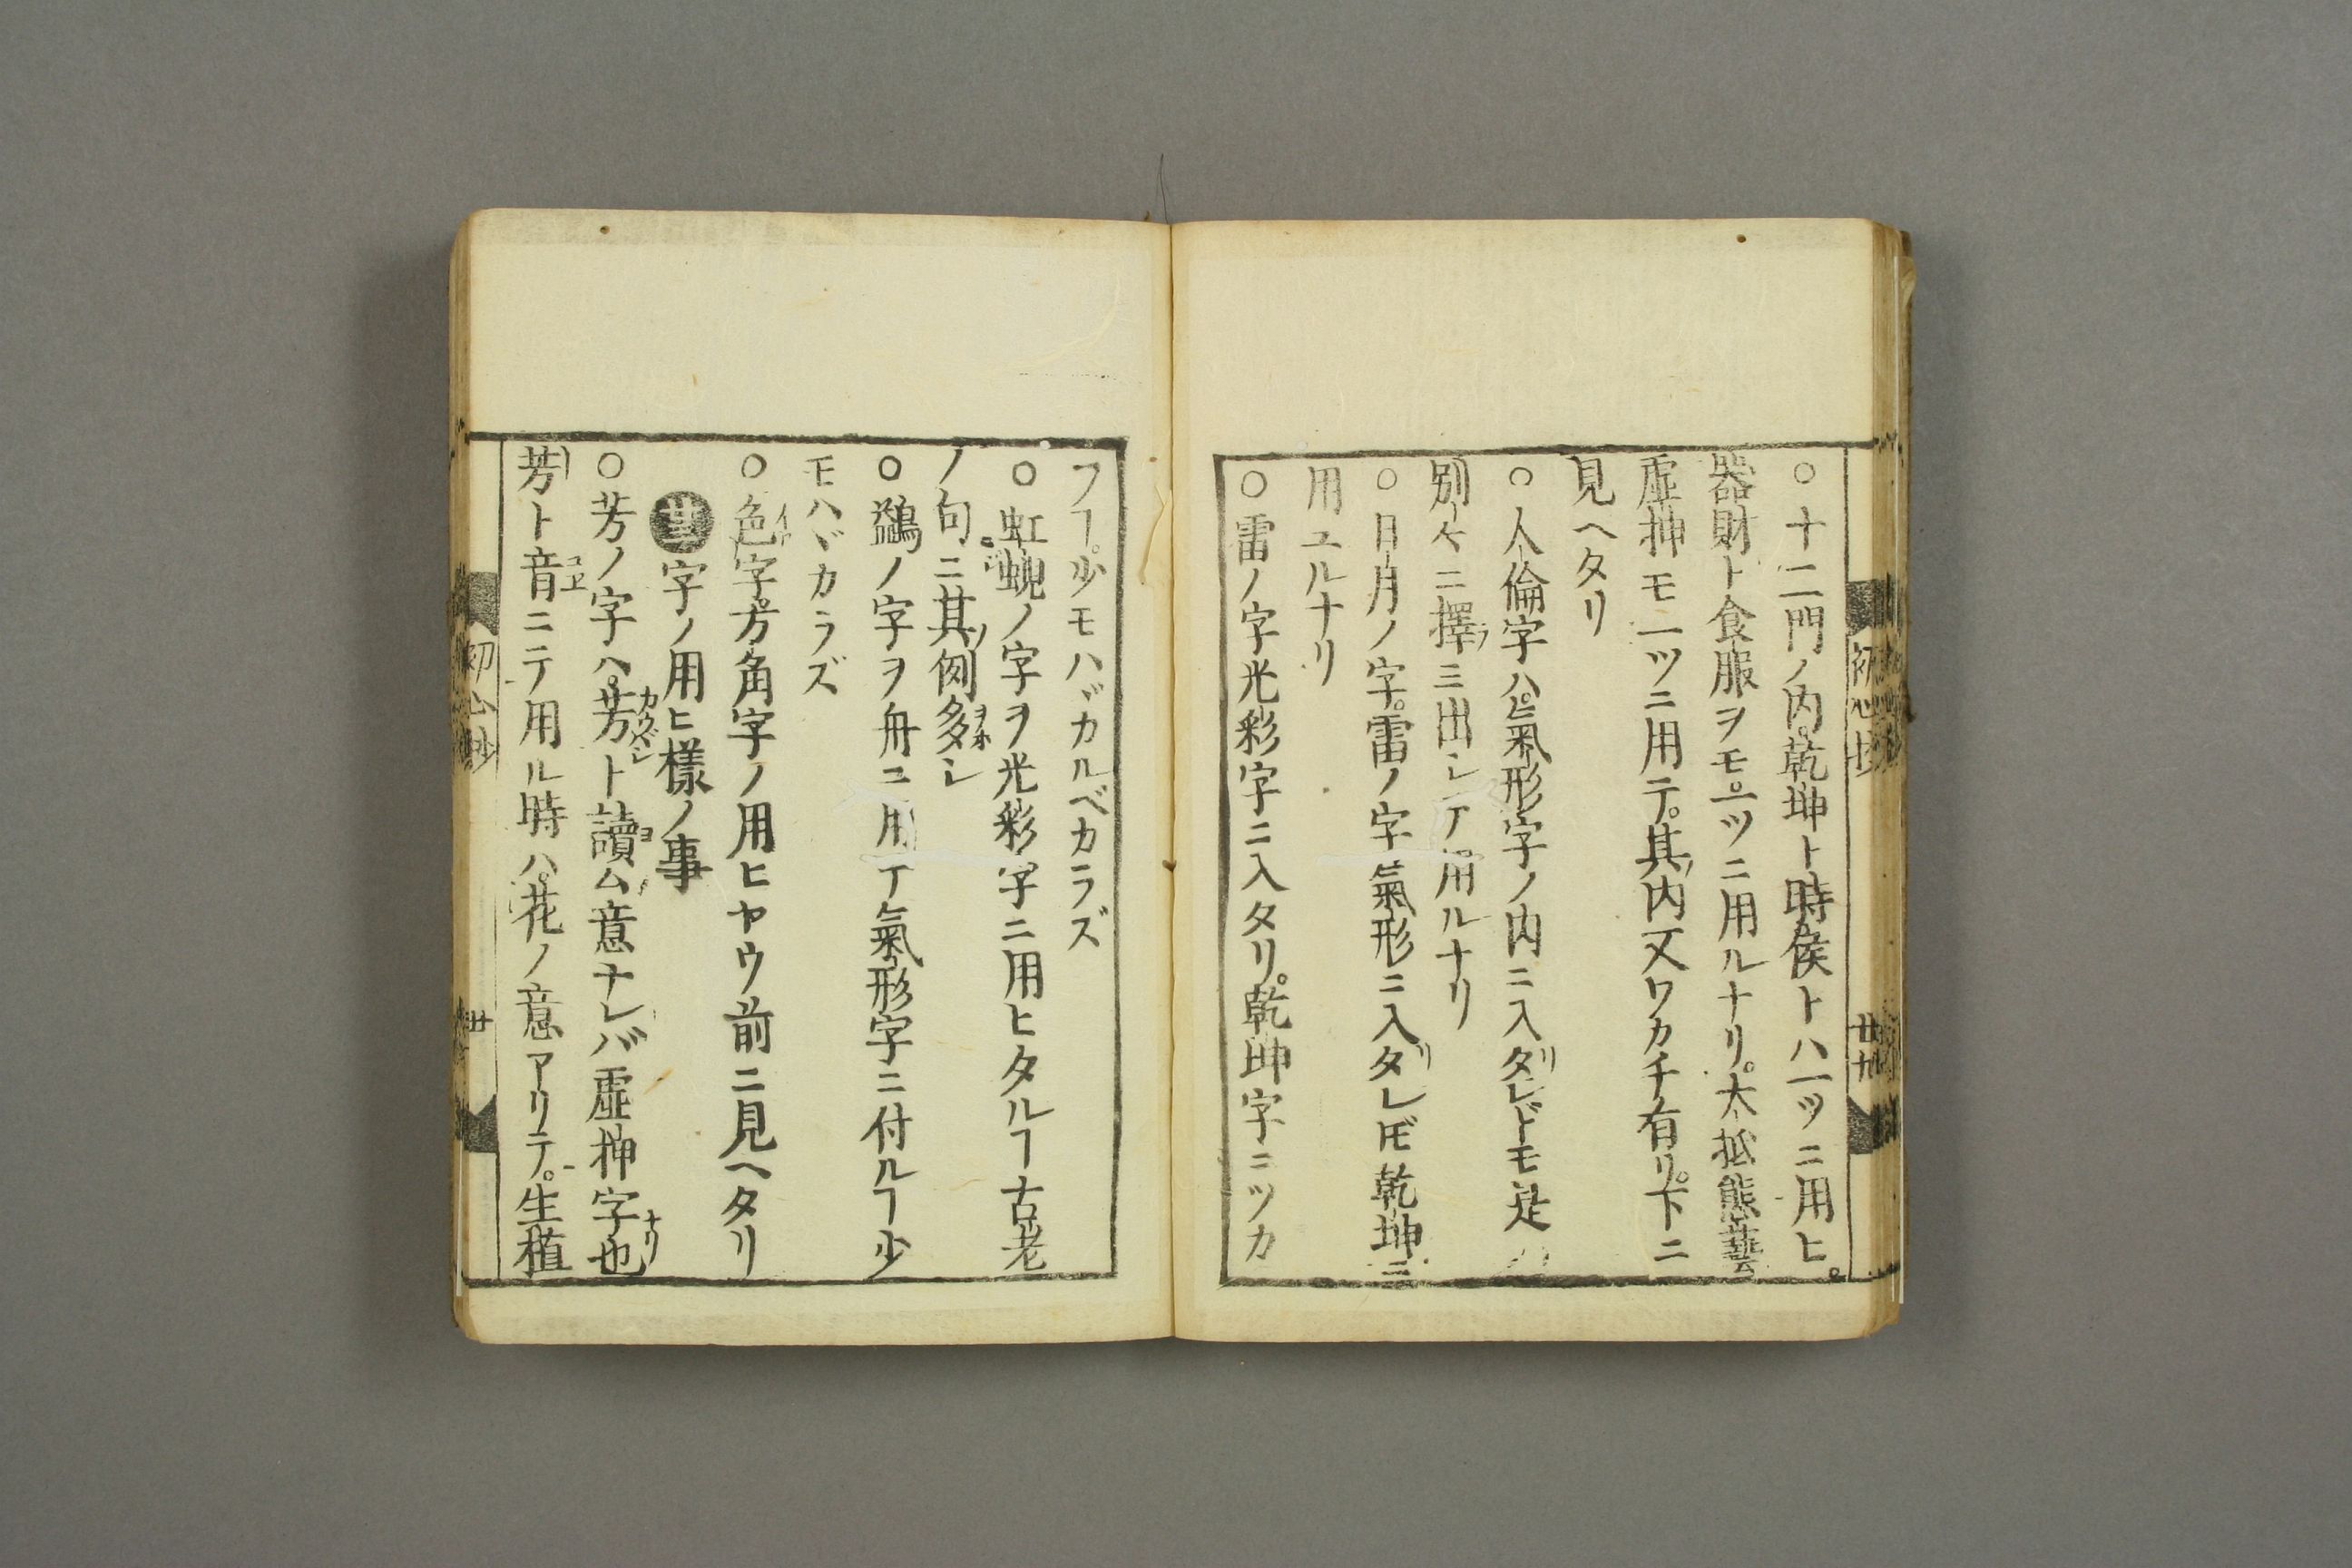 ○十二門ノ内。乾坤ト時候トハ一ツニ用ヒ。
器財ト食服ヲモ。一ツニ用ルナリ。大抵態藝
虚押モ一ツニ用テ。其内又ワカチ有リ。下ニ
見ヘタリ
○人倫字ハ。氣形字ノ内ニ入タレドモ是
別ケニ擇ミ出シテ用ルナリ
○日月ノ字。雷ノ字氣形ニ入タレ𪜈乾坤ニ
用ユルナリ
○雷ノ字光彩字ニ入タリ。乾坤字ニツカ
フヿ。少モハヾカルベカラズ
○虹蜺ノ字ヲ光彩字ニ用ヒタルヿ古老
ノ句ニ其例多シ
○鷁ノ字ヲ舟ニ用テ氣形字ニ付ルヿ少
モハヾカラズ
○色字。方角字ノ用ヒヤウ前ニ見ヘタリ
字ノ用ヒ樣ノ事
○芳ノ字ハ。芳ト讀ム意ナレバ虚押字也
芳ト音ニテ用ル時ハ。花ノ意アリテ。生植
初心抄
廿九